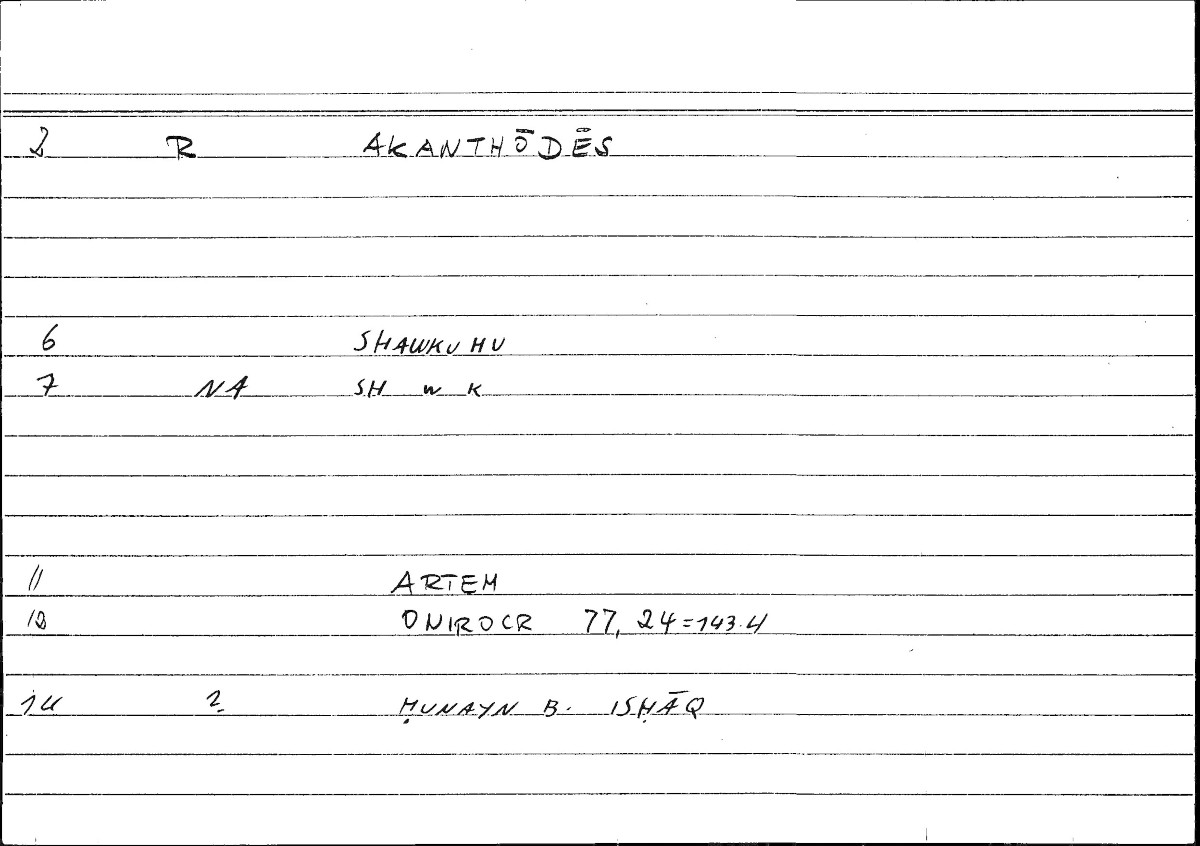 2 R AKANTHŌDĒS
6 SHAWKUHU
7 NA SH W K
11 ARTEM
12 ONIROCR 77, 24=143.4
14 2 ḤUNAYN B. ISḤĀQ